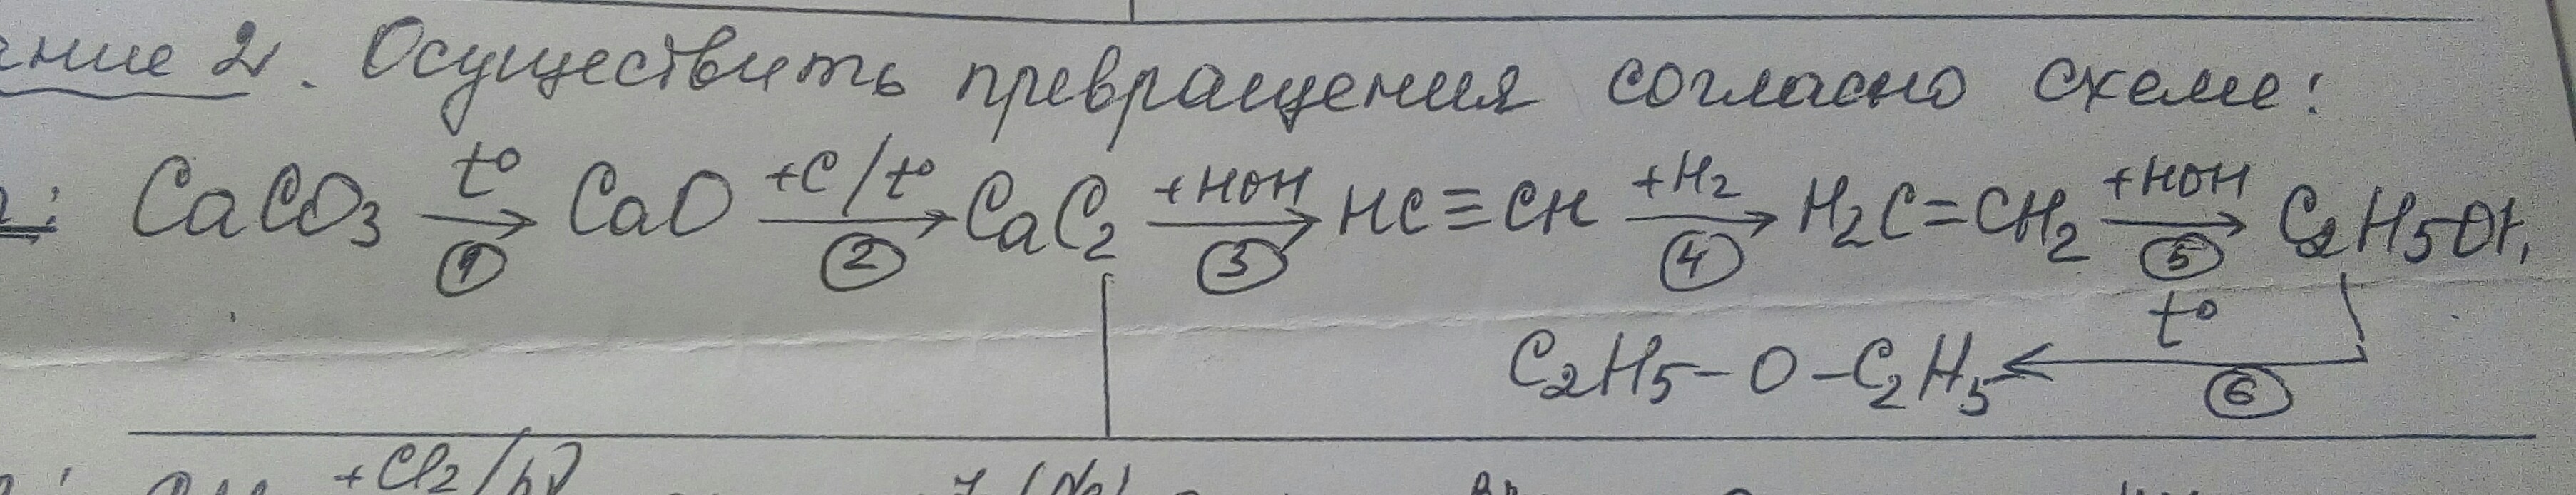 2. Осуществить превращения согласно схеме:
CaCO₃ →(t°) ① CaO →(+C/t°) ② CaC₂ →(+HOH) ③ HC≡CH →(+H₂) ④ H₂C=CH₂ →(+HOH) ⑤ C₂H₅OH
t°
C₂H₅-O-C₂H₅ ← ⑥
+Cl₂/hν